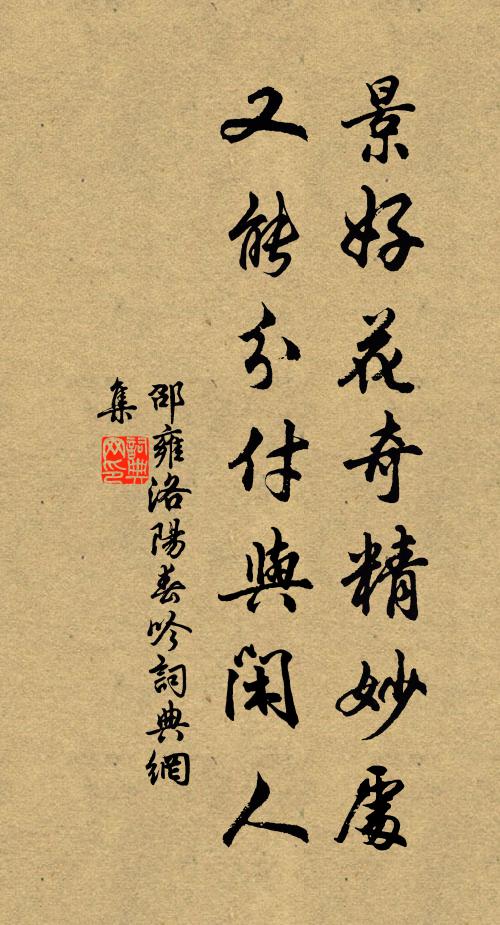 景好花奇精妙處
又能分付與閑人
邵雍洛陽春吟詞典網
集
詞典网印